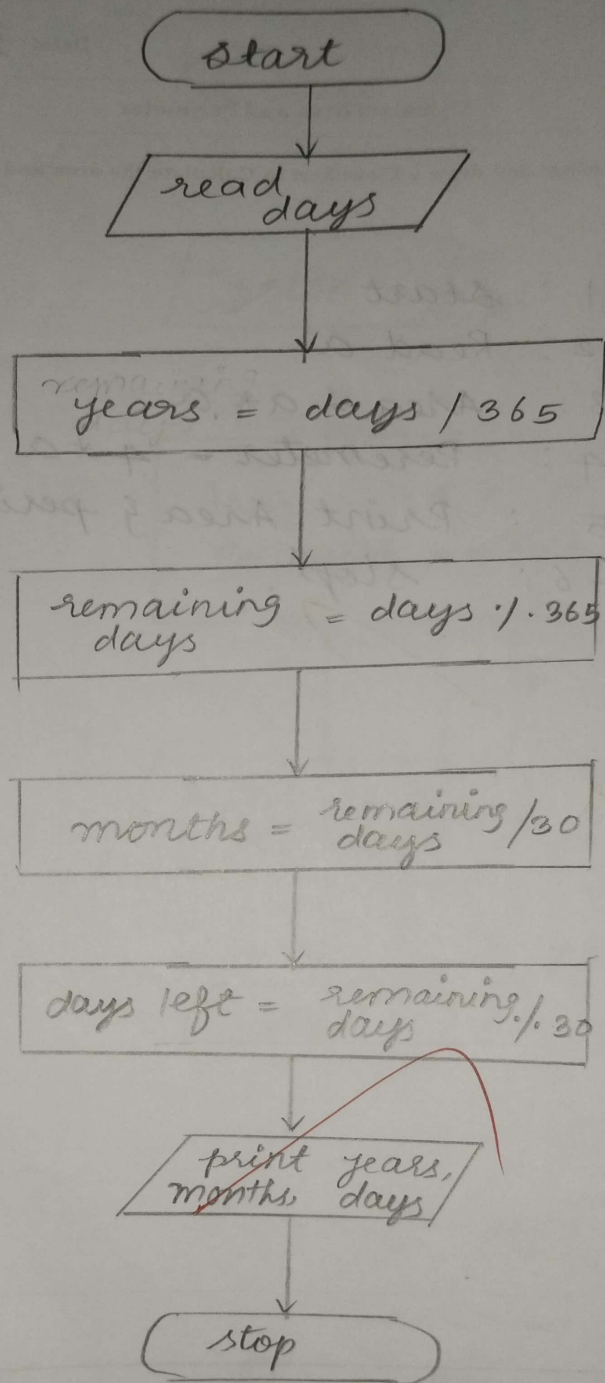 start
read
days
years = days / 365
remaining
days = days % 365
months = remaining
days /30
days left = remaining
days % 30
print years,
months, days
stop